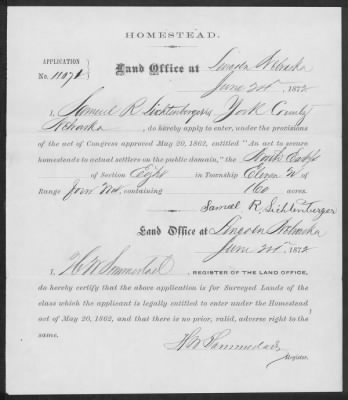 HOMESTEAD.
APPLICATION
No. 11071
Land Office at Lincoln Nebraska
June 2nd, 1872
I, Samuel R. Lichtenberger, York County
Nebraska, do hereby apply to enter, under the provisions
of the act of Congress approved May 20, 1862, entitled "An act to secure
homesteads to actual settlers on the public domain," the North East ¼
of Section Eight in Township Eleven N of
Range Four West containing 160 acres.
Samuel R. Lichtenberger
Land Office at Lincoln Nebraska
June 2nd 1872
I, REGISTER OF THE LAND OFFICE,
do hereby certify that the above application is for Surveyed Lands of the
class which the applicant is legally entitled to enter under the Homestead
act of May 20, 1862, and that there is no prior, valid, adverse right to the
same.
Register.